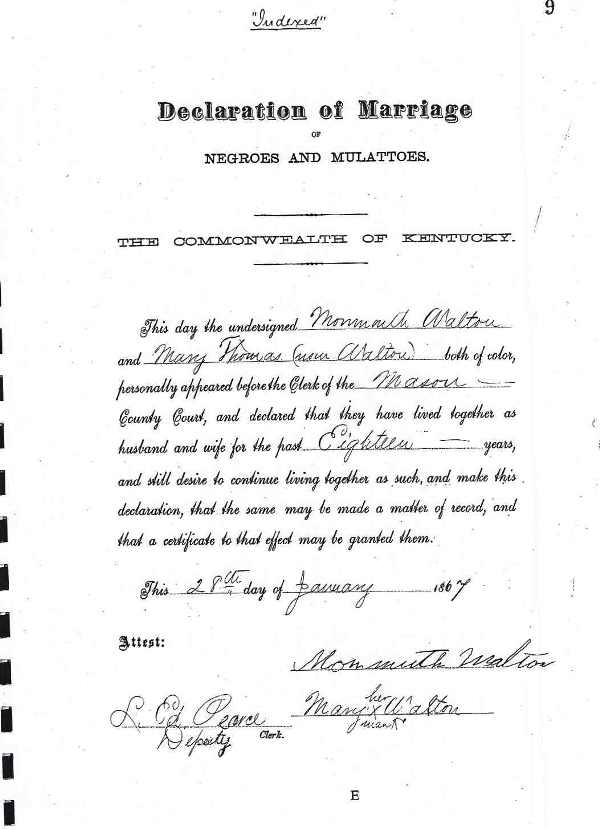 "Indexed"
9
Declaration of Marriage
OF
NEGROES AND MULATTOES.
THE COMMONWEALTH OF KENTUCKY.
This day the undersigned Monmouth Walton
and Mary Thomas (now Walton) both of color,
personally appeared before the Clerk of the Mason
County Court, and declared that they have lived together as
husband and wife for the past Eighteen years,
and still desire to continue living together as such, and make this
declaration, that the same may be made a matter of record, and
that a certificate to that effect may be granted them.
This 28th day of January 1867
Attest:
Monmouth Walton
her
Mary x Walton
mark
L. Ed. Pearce
Deputy Clerk.
E